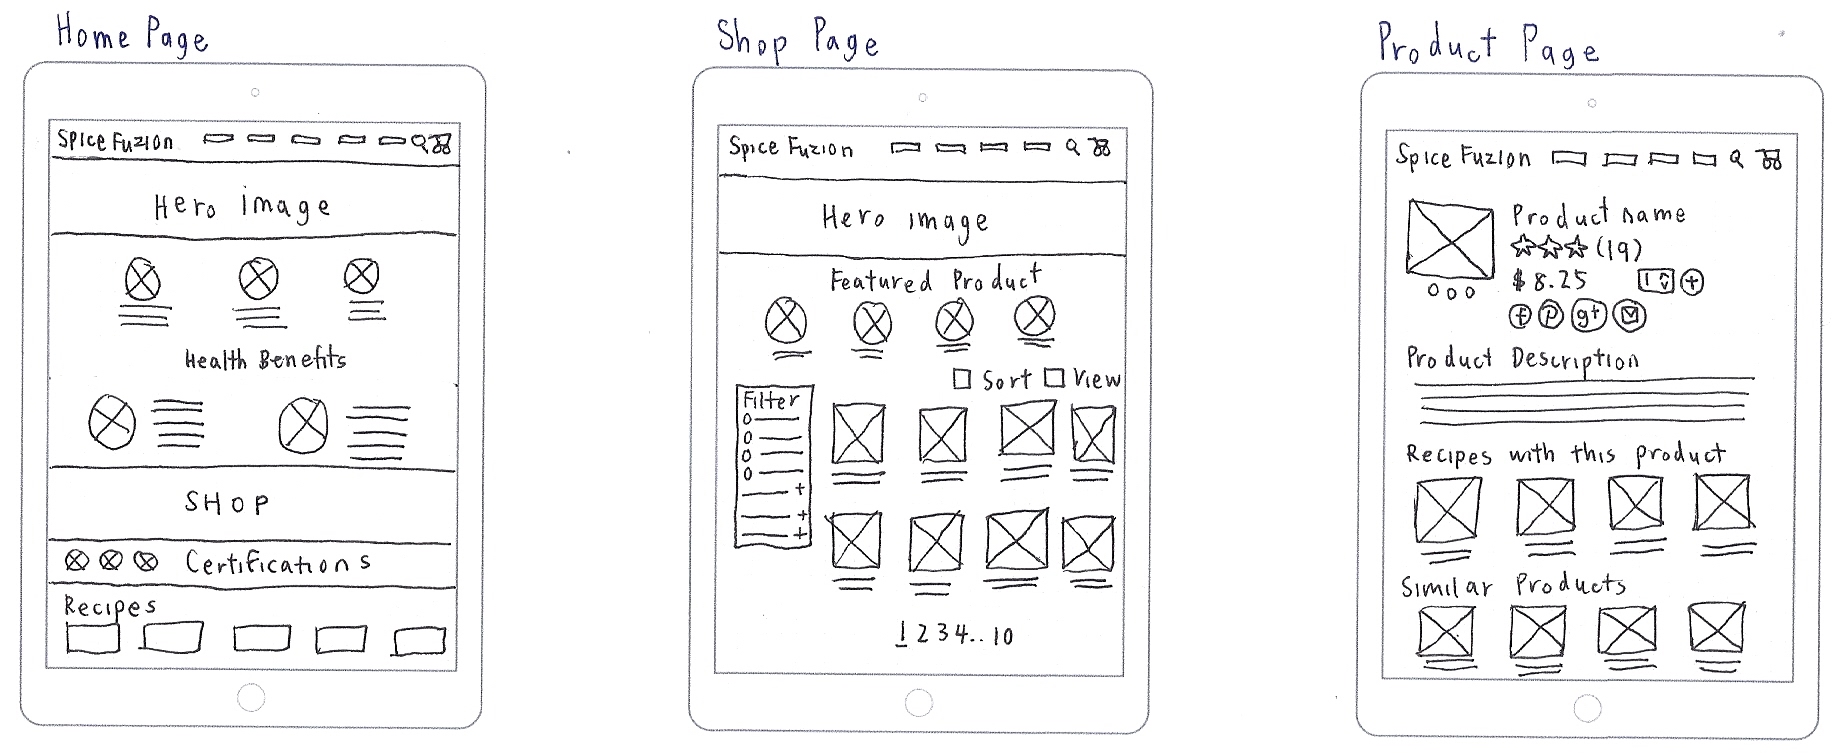 Home Page
Spice Fuzion
Hero image
Health Benefits
SHOP
Certifications
Recipes
Shop Page
Spice Fuzion
Hero image
Featured Product
Sort View
Filter
1 2 3 4.. 10
Product Page
Spice Fuzion
Product name
(19)
$8.25 1 +
f p g+
Product Description
Recipes with this product
Similar Products